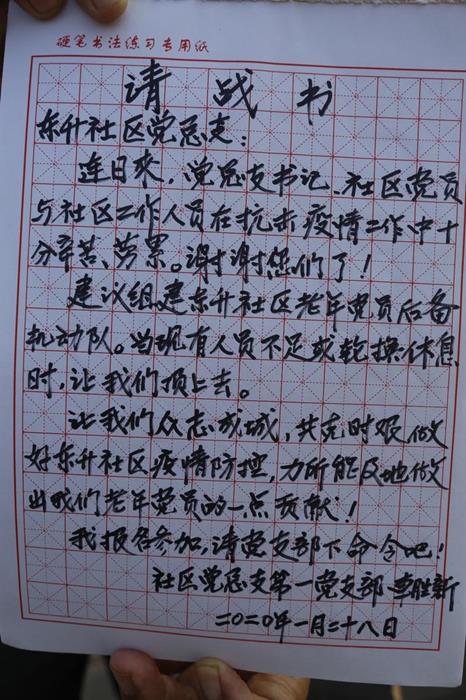 硬笔书法练习专用纸
请战书
东升社区党总支：
连日来，党总支书记、社区党员
与社区工作人员在抗击疫情工作中十
分辛苦、劳累。谢谢您们了！
建议组建东升社区老年党员后备
机动队。当现有人员不足或轮换休息
时，让我们顶上去。
让我们众志成城，共克时艰做
好东升社区疫情防控，力所能及地做
出我们老年党员的一点贡献！
我报名参加，请党支部下命令吧！
社区党总支第一党支部 李胜新
二〇二〇年一月二十八日